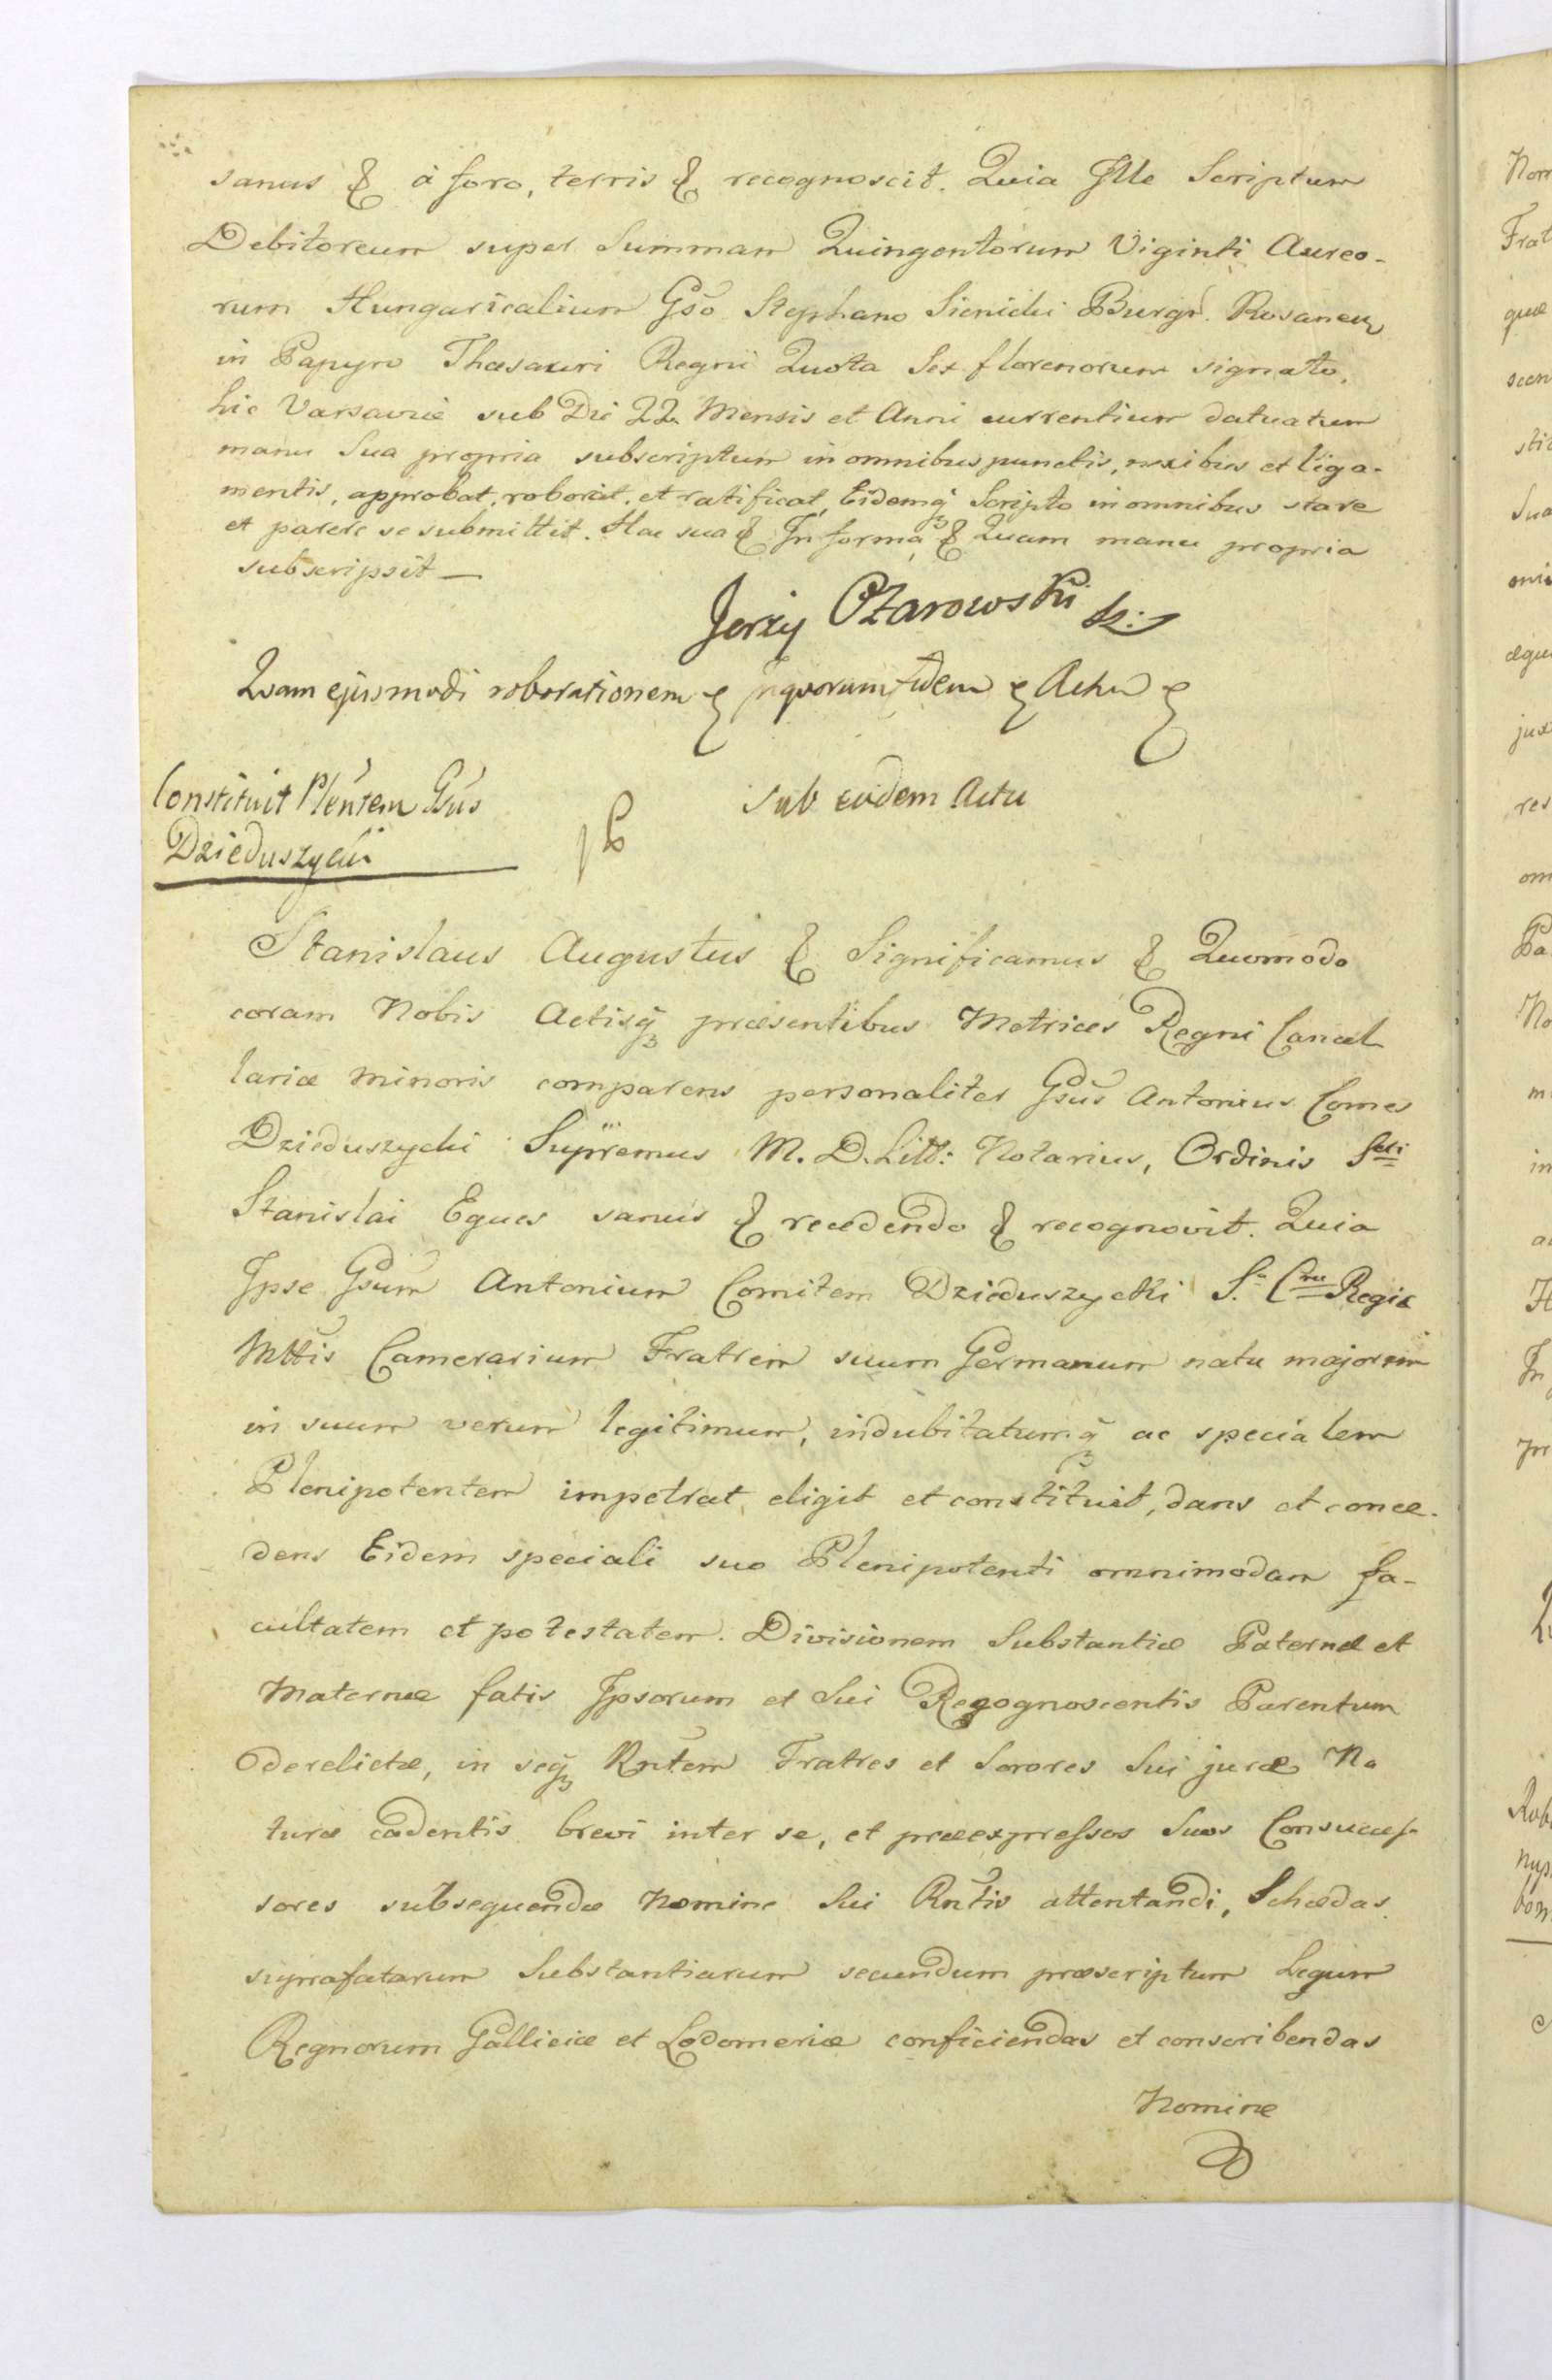 sanus & à foro, terris & recognoscit. Quia Ille Scriptum
Debitoreum super Summam Quingentorum Viginti Aureo-
rum Hungaricalium Gso Stephano Sienicki Burgr. Rosanen
in Papyro Thesauri Regni Quota Sex florenorum signato,
hic Varsaviæ sub Die 22 Mensis et Anni currentium datuatum
manu Sua propria subscriptum in omnibus punctis, nexibus et liga-
mentis, approbat, roborat, et ratificat, Eidemq Scripto in omnibus stare
et parere se submittit. Hac sua & In forma & Quam manu propria
subscripsit —
Jerzy Ożarowski
Quam ejusmodi roborationem & In quorum fidem & Actum &
Constituit Plentem Gsus
Dzieduszycki
Sub eodem Actu
Stanislaus Augustus & Significamus & Quomodo
coram Nobis Actisq præsentibus Metrices Regni Cancel
lariæ Minoris comparens personaliter Gsus Antonius Comes
Dzieduszycki Supremus M. D. Litt: Notarius, Ordinis Scti
Stanislai Eques sanus & recedendo & recognovit. Quia
Ipse Gsum Antonium Comitem Dzieduszycki S. Cræ Regiæ
Mttis Camerarium Fratrem suum Germanum natu majorem
in suum verum legitimum, indubitatumq ac specialem
Plenipotentem impetrat eligit et constituit, dans et conce-
dens Eidem speciali suo Plenipotenti omnimodam fa-
cultatem et potestatem. Divisionem Substantiæ Paternæ et
Maternæ fatis Ipsorum et Sui Regognoscentis Parentum
derelictæ, in seq Rntem Fratres et Sorores Sui juræ Na
turæ cadentis brevi inter se, et præexpressos Suos Consuces-
sores subsequendæ Nomine Sui Rntis attentandi, Schedas
suprafatarum Substantiarum secundum præscriptum Legum
Regnorum Galliciæ et Lodomeriæ conficiendas et conscribendas
Nomine